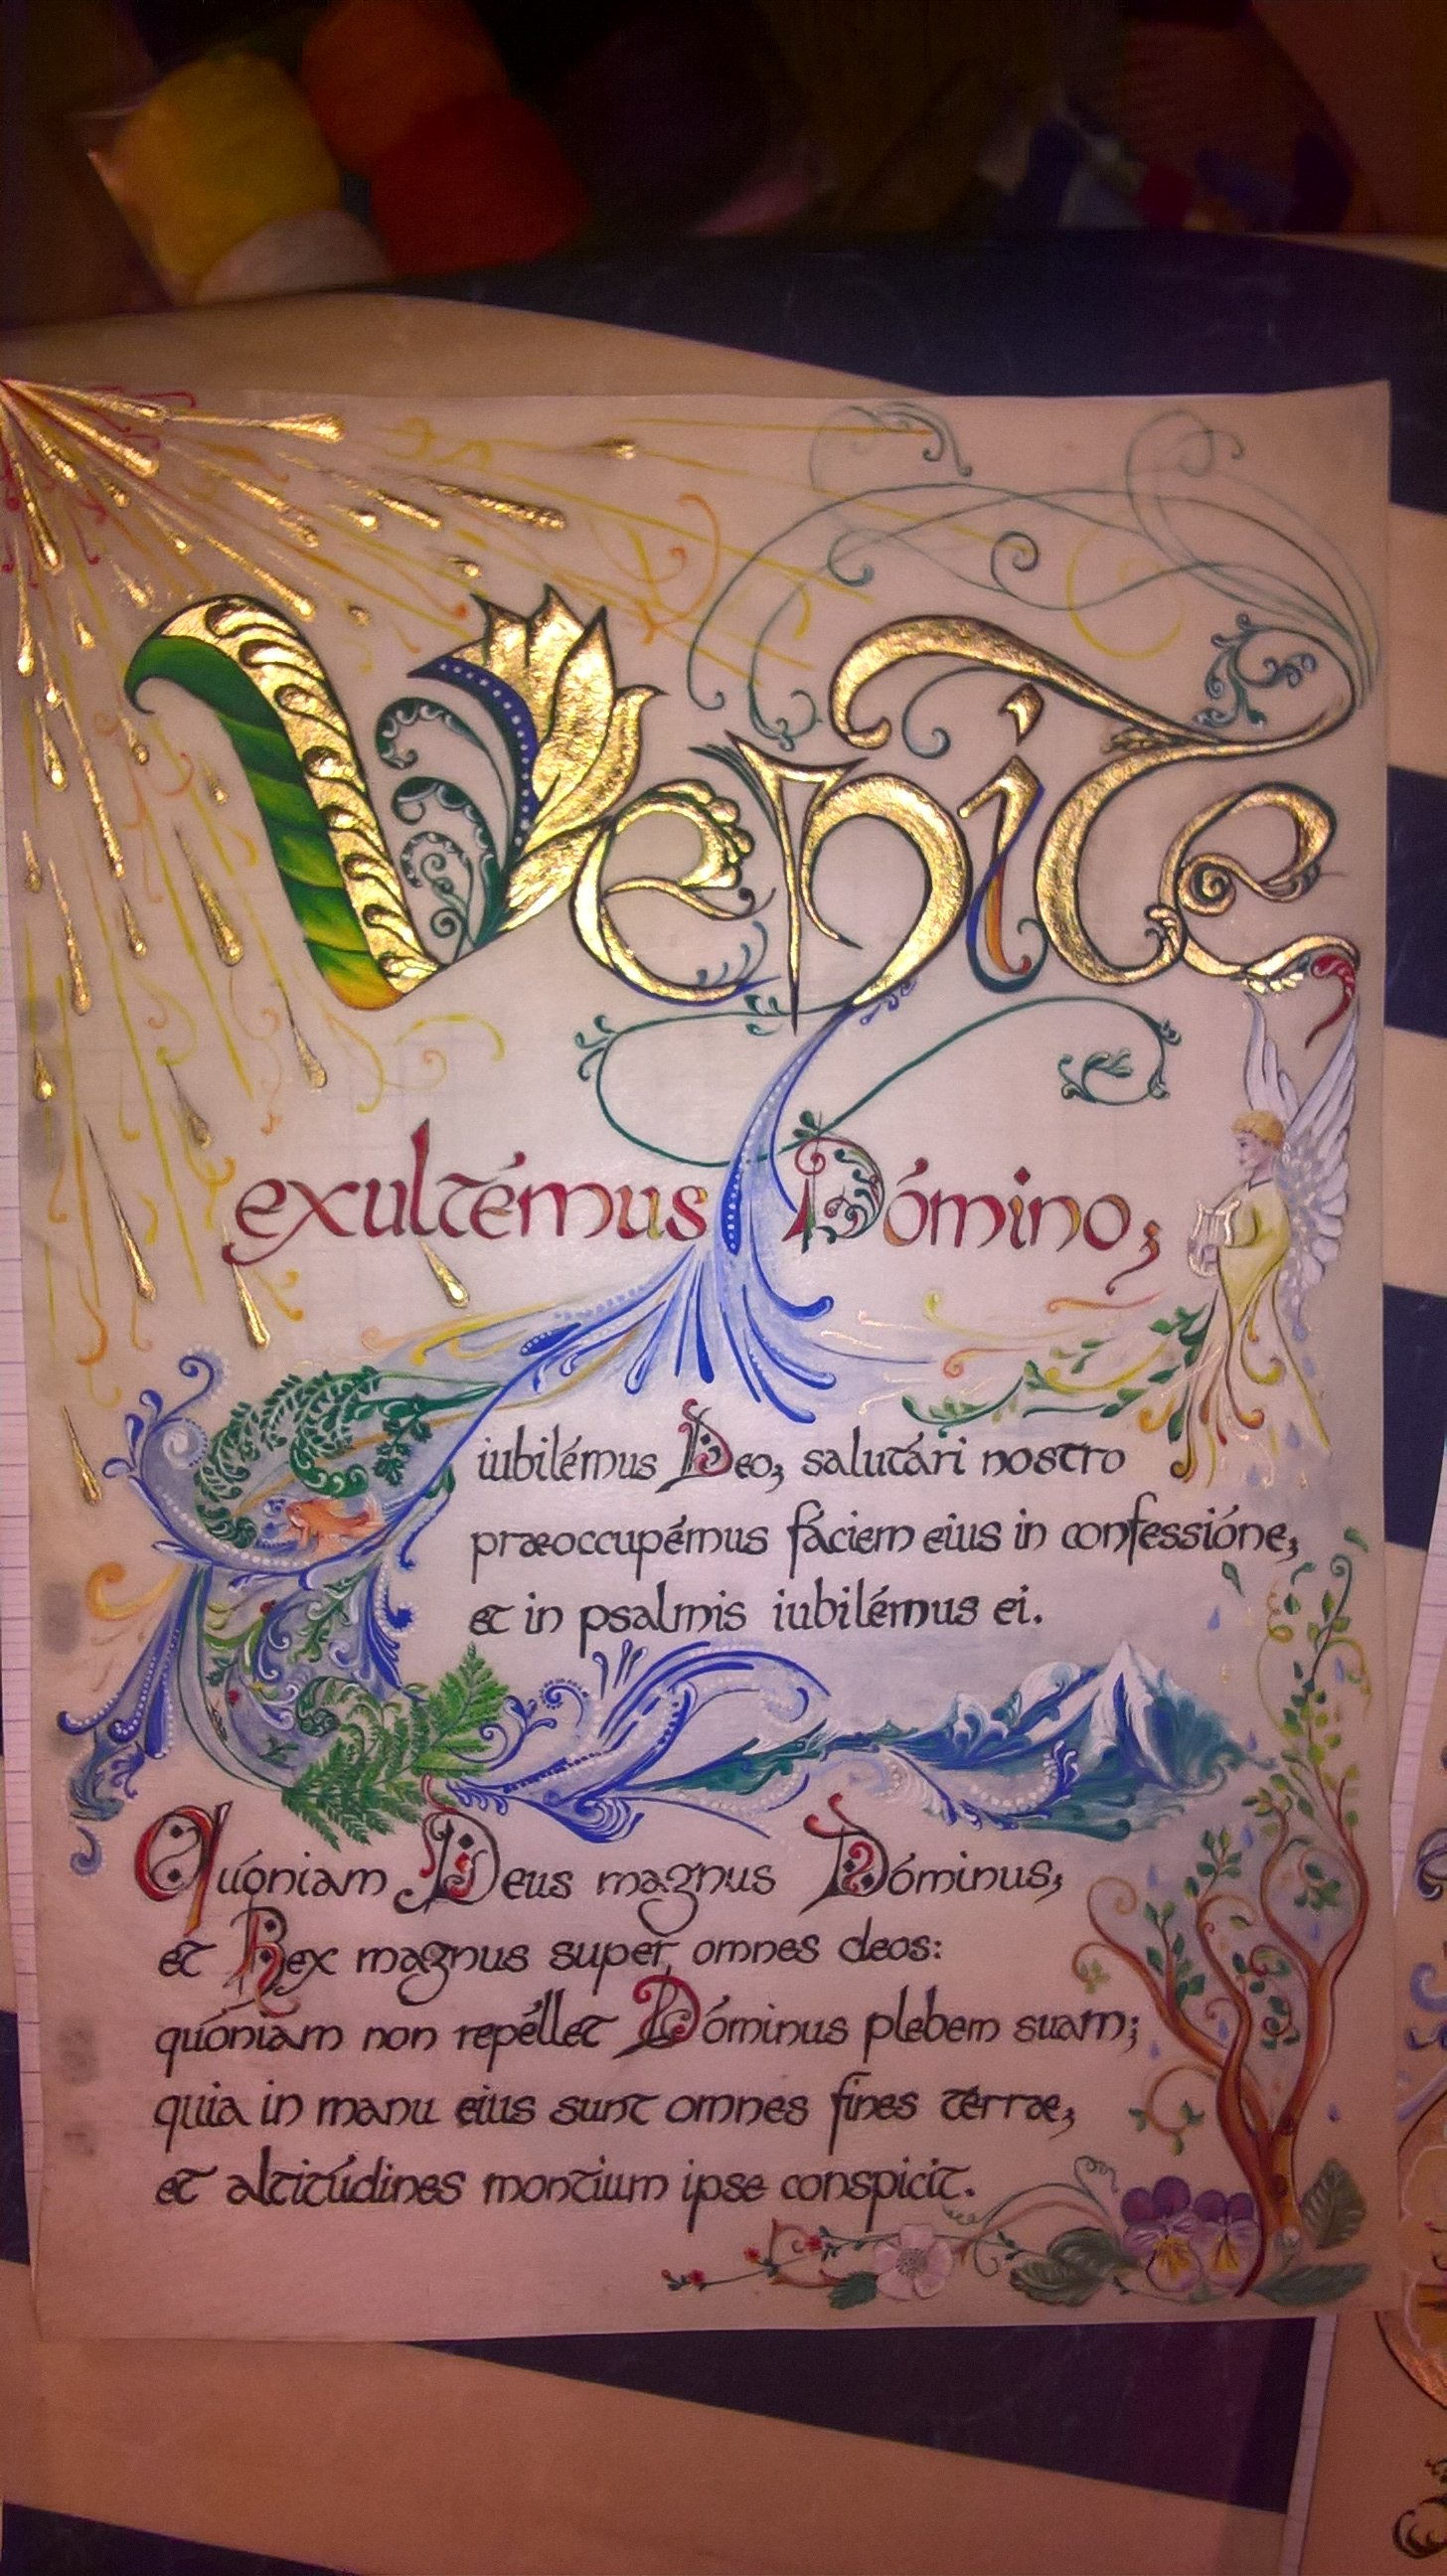 Venite
exultémus Dómino,
iubilémus Deo, salutári nostro
præoccupémus fáciem eius in confessióne,
et in psalmis iubilémus ei.
Quóniam Deus magnus Dóminus,
et Rex magnus super omnes deos:
quóniam non repéllet Dóminus plebem suam;
quia in manu eius sunt omnes fines terræ,
et altitúdines montium ipse conspicit.